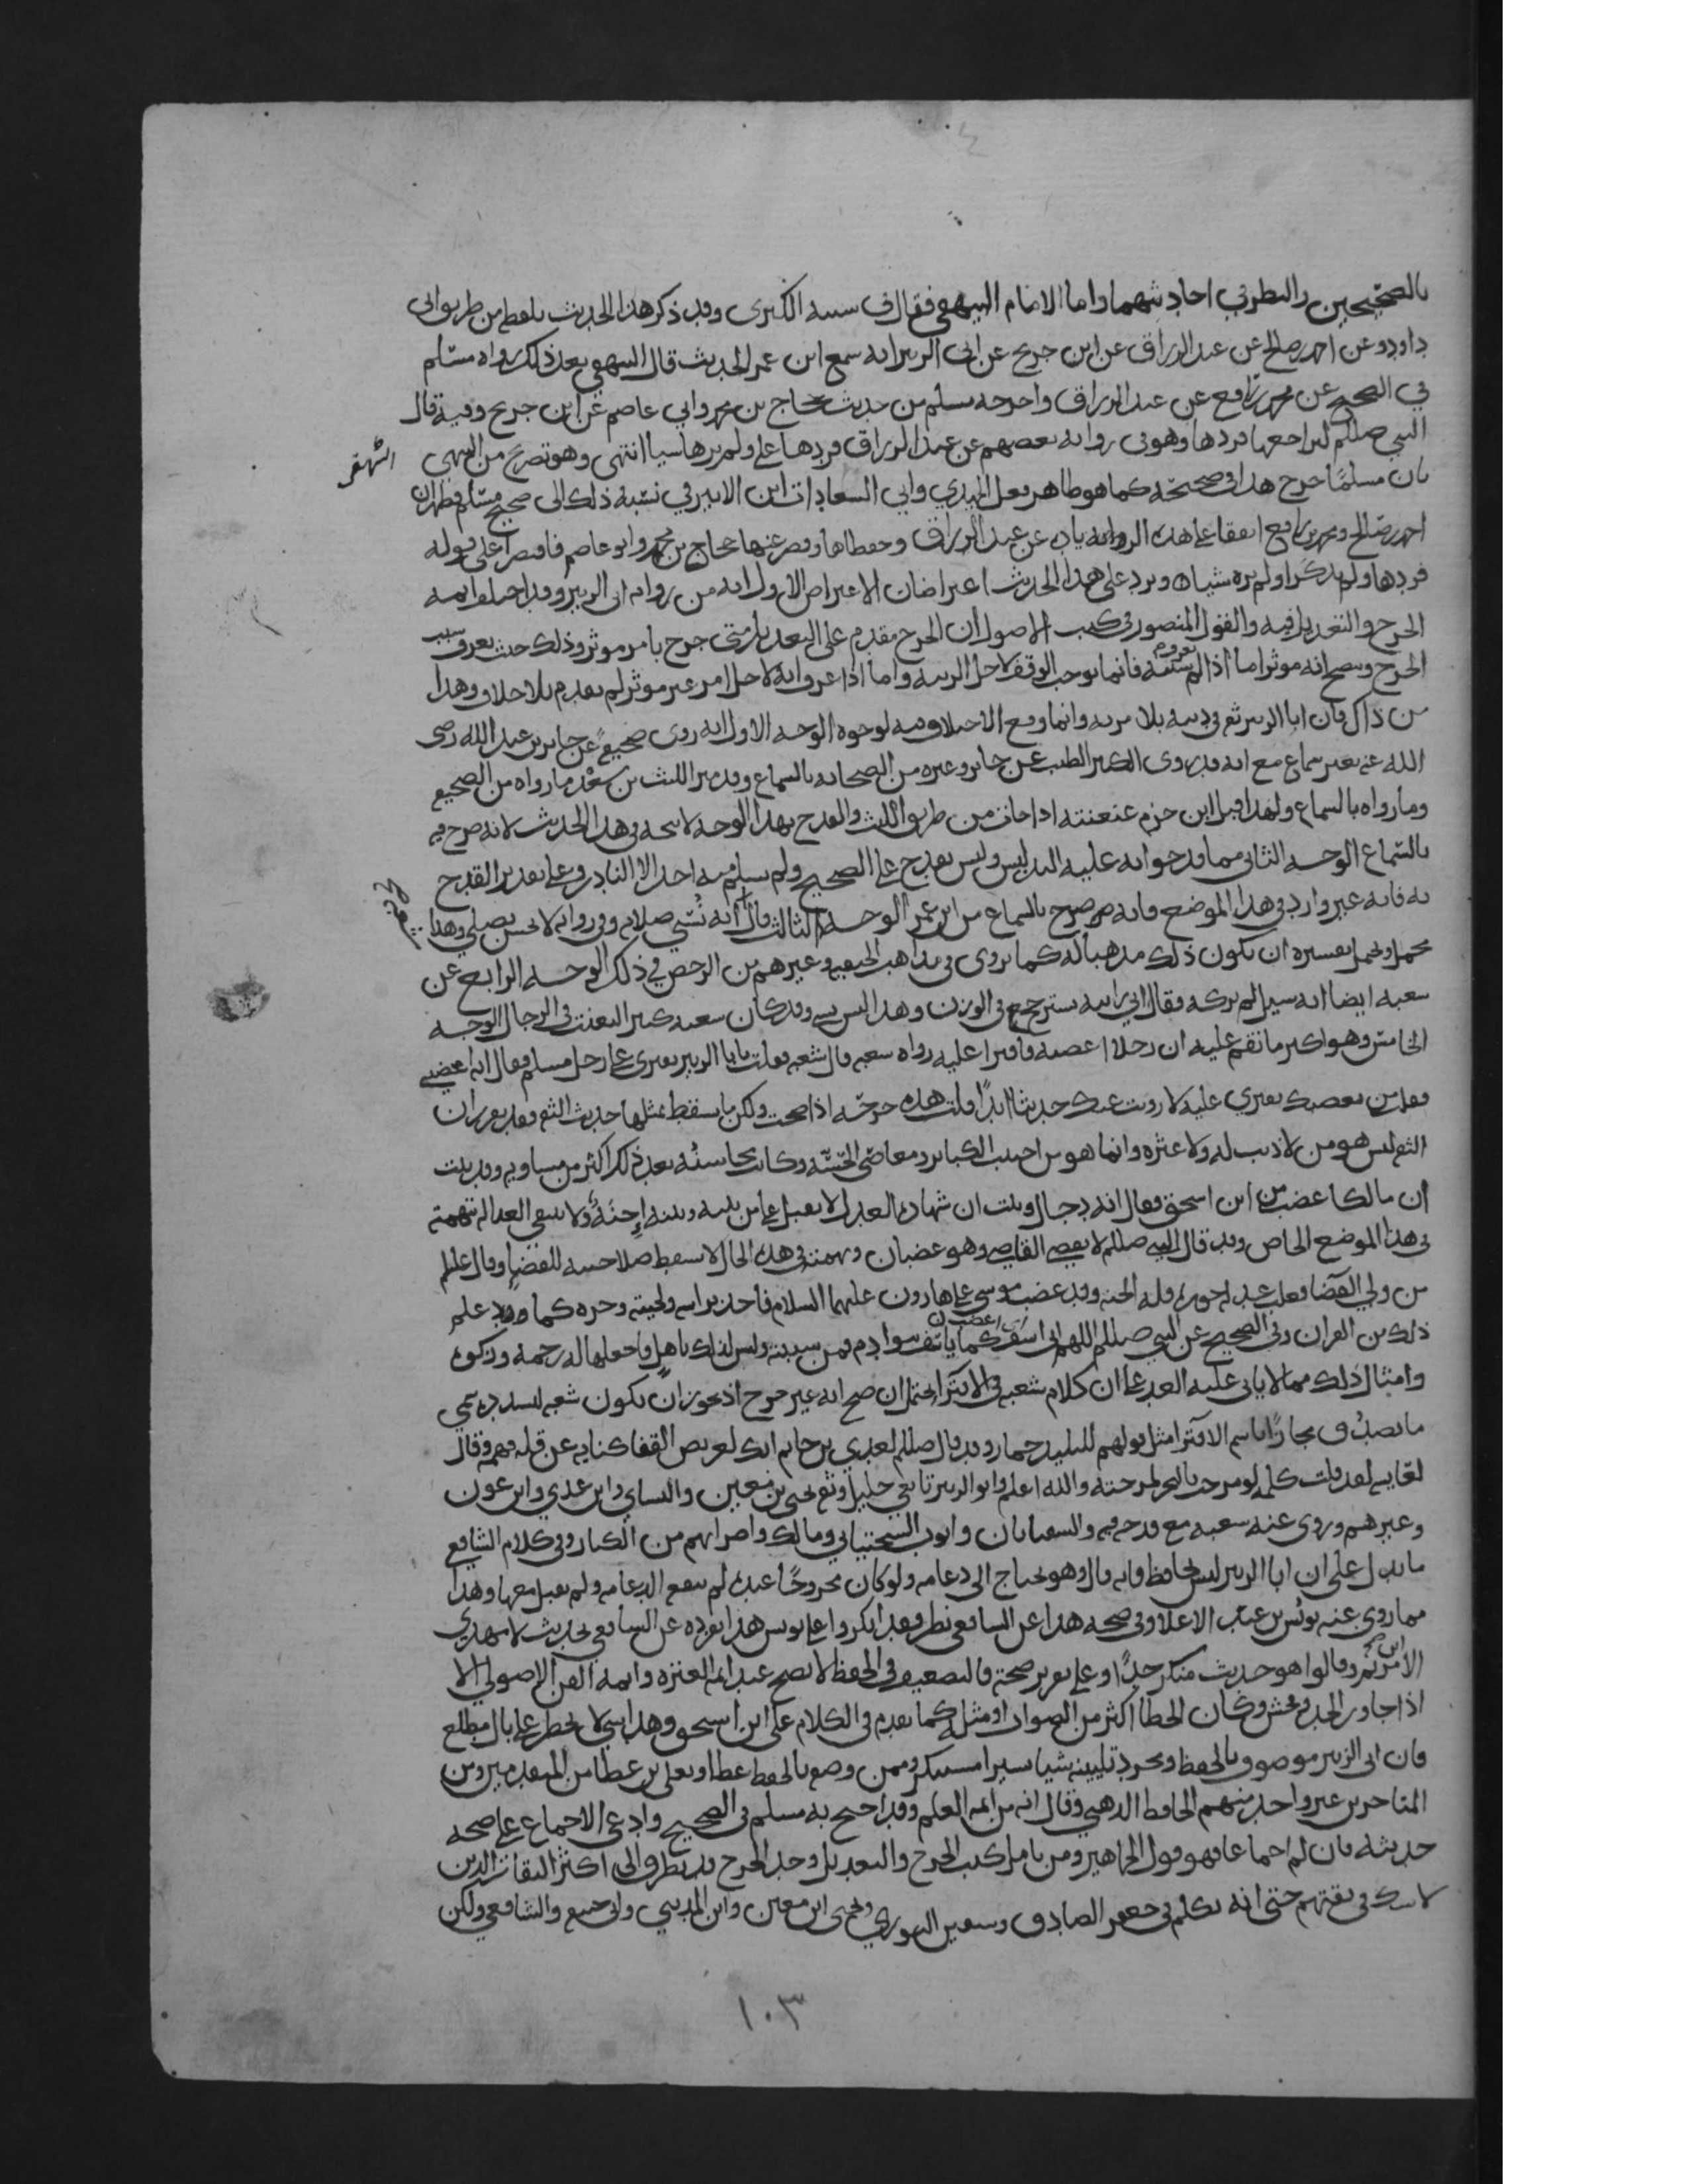 بالصحيحين والنظر في احاديثهما واما الامام البيهقي فقال في سننه الكبرى وقد ذكر هذا الحديث بلفظه من طريق ابي
داوود عن احمد بن صالح عن عبد الرزاق عن ابن جريج عن ابي الزبير انه سمع ابن عمر الحديث قال البيهقي بعد ذلك رواه مسلم
في الصحيح عن محمد بن رافع عن عبد الرزاق واخرجه مسلم من حديث حجاج بن محمد وابي عاصم عن ابن جريج وفيه قال
النبي صللم ليراجعها فردها وهو في رواية بعضهم عن عبد الرزاق فردها علي ولم يرها شيا انتهى وهو تصريح من البيهقي
بان مسلمًا خرج هذا في صحيحه كما هو ظاهر فعل الحميدي وابي السعادات ابن الاثير في نسبة ذلك الى صحيح مسلم فظهر ان
احمد بن صالح ومحمد بن رافع اتفقا على هذه الرواية عن عبد الرزاق وحفظاها وقصر عنها حجاج بن محمد وابو عاصم فاقتصرا على قوله
فردها ولم يذكرا ولم يره شيا ويرد على هذا الحديث اعتراضان الاعتراض الاول انه من رواية ابي الزبير وقد اختلف ايمة
الجرح والتعديل فيه والقول المنصور في كتب الاصول ان الجرح مقدم على التعديل متى جرح بامر موثر وذلك حيث يعرف سبب
الجرح ويصح انه موثر اما اذا لم فانما يوجب الوقف لاجل الريبة واما اذا عرف انه لاجل امر غير موثر لم يقدم بلا خلاف وهذا
من ذاك فان ابا الزبير ثقة في دينه بلا مرية وانما وقع الاختلاف فيه لوجوه الوجه الاول انه روى صحيفة عن جابر بن عبد الله رضي
الله عنه بغير سماع مع انه قد روى الكثير الطيب عن جابر وغيره من الصحابة بالسماع وقد ميز الليث بن سعد ما رواه من الصحيفة
وما رواه بالسماع ولهذا قبل ابن حزم عنعنته اذا جات من طريق الليث والقدح بهذا الوجه لا يتجه في هذا الحديث لانه صرح فيه
بالسماع الوجه الثاني مما قدحوا به عليه التدليس وليس بقدح على الصحيح ولم يسلم منه احد الا النادر وعلى تقدير القدح
به فانه غير وارد في هذا الموضع فانه صرح بالسماع من ابن عمر الوجه الثالث قال انه يسي صلاته وفي رواية لا يحسن يصلي وهذا
مجمل ويحمل تفسيره ان يكون ذلك مذهبا له كما يروى في مذاهب الحنفية وغيرهم من الرخص في ذلك الوجه الرابع عن
شعبة ايضا انه سيل لم تركه فقال اني رايته يسترجح في الوزن وهذا ليس بشي وقد كان شعبة كثير التعنت في الرجال الوجه
الخامس وهو اكبر ما نقم عليه ان رجلا اغضبه فافترا عليه رواه شعبة قال شعبة فقلت يا با الزبير تفتري على رجل مسلم فقال انه اغضبني
فقلت من يغضبك تفتري عليه لا رويت عنك حديثا ابدًا قلت هذه جرحه اذا صحت ولكن ما يسقط بمثلها حديث الثقة وقد تقرر ان
الثقة ليس هو من لا ذنب له ولا عثره وانما هو من اجتنب الكباير ومعاصي الخسة وكانت محاسنه بعد ذلك اكثر من مساويه وقد ثبت
ان مالكا غضب من ابن اسحق فقال انه دجال وثبت ان شهادة العدل لا تقبل على من بينه وبينه إحنة ولا تنتفي العدالة بتهمته
في هذا الموضع الخاص وقد قال النبي صللم لا يقضي القاضي وهو غضبان وتهمته في هذه الحال لا تسقط صلاحيته للقضا وقال عليلم
من ولي القضا فغلب عدله جوره فله الجنة وقد غضب موسى على هارون عليهما السلام فاخذ براسه ولحيته وجره كما علم
ذلك من القران وفي الصحيح عن النبي صللم اللهم اني اسف كما ياسف بنوا ادم فمن سببته وليس لذلك باهل فاجعلها له رحمة وزكوة
وامثال ذلك مما لا ياتي عليه العد على ان كلام شعبة في الافترا محتمل ان صح انه غير جرح اذ يجوز ان يكون شعبة لتشديده يسمي
ما يصدق مجازًا باسم الافترا مثل قولهم للبليد حمار وقد قال صللم لعدي بن حاتم انك لعريض القفا كناية عن قلة فهمه وقال
لعايشة لقد قلت كلمة لو مزجت بالبحر لمزجته والله اعلم وابو الزبير تابعي جليل وثقه يحيى بن معين والنساي وابن عدي وابن عون
وغيرهم وروى عنه شعبة مع قدحه فيه والسفيانان وايوب السختياني ومالك واضرابهم من الكبار وفي كلام الشافعي
ما يدل على ان ابا الزبير ليس بحافظ فانه قال وهو يحتاج الى دعامة ولو كان مجروحًا عنده لم تنفع الدعامة ولم يقبل معها وهذا
مما روى عنه يونس بن عبد الاعلا وفي صحة هذا عن الشافعي نظر فقد انكروا على يونس هذا تفرده عن الشافعي بحديث لا مهدي
الا ابن مريم وقالوا هو حديث منكر جدًا وعلى تقدير صحته فالتضعيف في الحفظ لا يصح عند ايمة العترة وايمة الفن الاصولي الا
اذا جاوز الحد وفحش وكان الخطا اكثر من الصواب او مثله كما تقدم في الكلام على ابن اسحق وهذا شي لا يخطر على بال مطلع
فان ابي الزبير موصوف بالحفظ ومجرد تليينه شيا يسيرا مستنكر وممن وصفه بالحفظ عطا ويعلى بن عطا من المتقدمين ومن
المتاخرين غير واحد منهم الحافظ الذهبي وقال انه من ايمة العلم وقد احتج به مسلم في الصحيح وادعي الاجماع على صحة
حديثه فان لم يكن اجماعا فهو قول الجماهير ومن تامل كتب الجرح والتعديل وجد الجرح قد تطرق الى اكثر الثقات الذين
لا شك في ثقتهم حتى انه تكلم في جعفر الصادق وسفين الثوري ويحيى ابن معين وابن المديني وابي حنيفة والشافعي ولكن
١٠٣